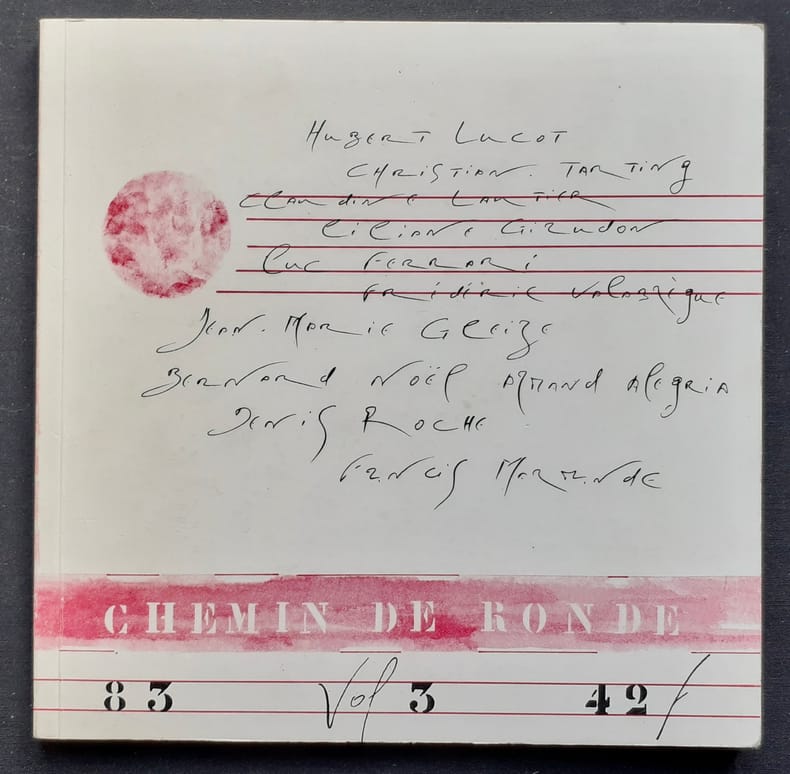 Hubert Lucot
Christian. Tarting
Claudine Lautier
Liliane Giraudon
Luc Ferrari
Frédéric Valabrègue
Jean-Marie Gleize
Bernard Noël Armand Alegria
Denis Roche
Francis Marmande
CHEMIN DE RONDE
83 Vol 3 42 F